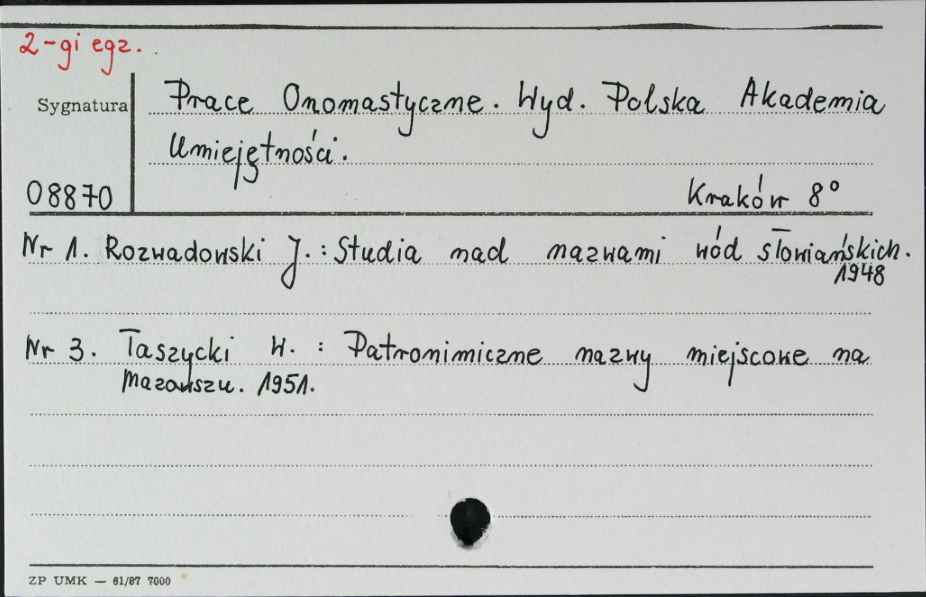 2-gi egz.
Sygnatura
Prace Onomastyczne. Wyd. Polska Akademia
Umiejętności.
08870
Kraków 8°
Nr 1. Rozwadowski J.: Studia nad nazwami wód słowiańskich.
1948
Nr 3. Taszycki W. : Patronimiczne nazwy miejscowe na
Mazowszu. 1951.
ZP UMK — 61/87 7000